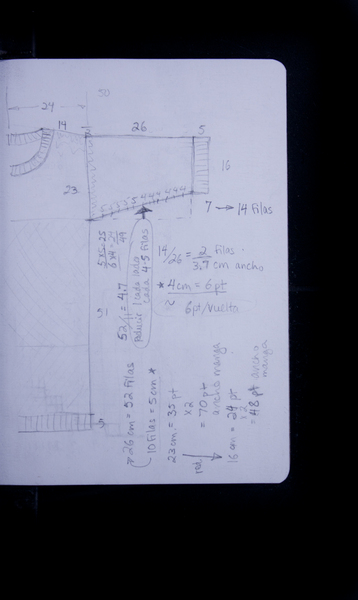 50
24
14
26
5
16
23
5 4 4 4 4 4 4
7 → 14 Filas
14/26 = 2 filas
3.7 cm ancho
* 4cm = 6pt
≈ 6pt/vuelta
5x5=25
6x4=24
49
52/11 = 4.7
Reducir 1 cada lado
cada 4-5 filas
* 26 cm = 52 Filas
10 Filas = 5cm *
23 cm = 35 pt
x2
= 70 pt
ancho manga
red.
16 cm = 24 pt
x2
= 48 pt ancho
manga